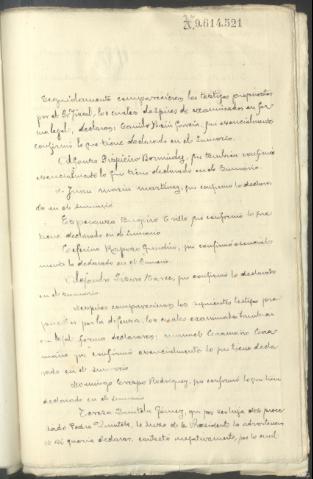 Nº 9.614.521
Seguidamente comparecieron los testigos propuestos
por el Sr Fiscal, los cuales después de examinados en for
ma legal, declaran: Camilo García, que esencialmente
confirmó lo que tiene declarado en el Sumario.
Bermúdez, que también confirmó
esencialmente lo que tiene declarado en el Sumario.
Juan María Martínez, que confirmó lo declara
do en el sumario
Esperanza Trillo que confirmó lo que
tiene declarado en el Sumario
Ceferino Raposo que confirmó esencial
mente lo declarado en el Sumario.
Alejandro que confirmó lo declarado
en el Sumario
Después comparecieron los siguientes testigos pro
puestos por la defensa, los cuales examinados también
en legal forma declararon: Manuel Caamaño Caa
maño que confirmó esencialmente lo que tiene decla
rado en el sumario
Domingo Crespo Rodríguez, que confirmó lo que tiene
declarado en el sumario
Teresa Quintela Gómez, que por ser hija del proce
sado Pedro Quintela, le hizo el Presidente la advertencia
de si quería declarar, contestó negativamente, por lo cual